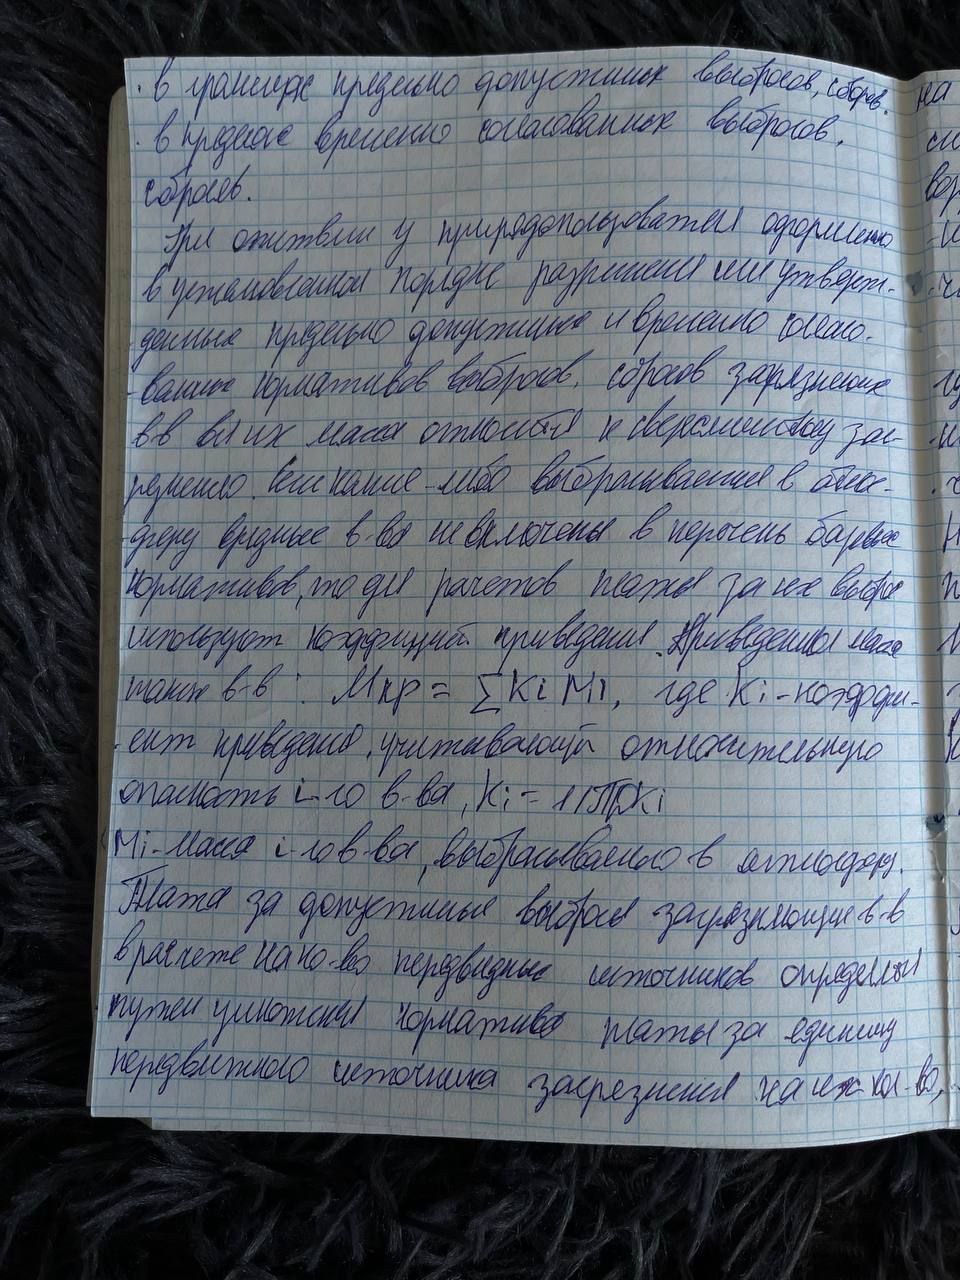 · в границах предельно допустимых выбросов, сбросов.
· в пределах временно согласованных выбросов,
сбросов.
При отсутствии у природопользователя оформленно
в установленном порядке разрешения или утверж-
-денных предельно допустимых и временно согласо-
-ванных нормативов выбросов, сбросов загрязняющих
в-в вся их масса относится к сверхлимитному заг-
рязнению. Если какие-либо выбрасываемые в атмос-
-феру вредные в-ва не включены в перечень базовых
нормативов, то для расчетов платы за их выброс
используют коэффициент приведения. Приведенная масса
таких в-в: Mпр = ∑Ki Mi, где Ki - коэффици-
-ент приведения, учитывающий относительную
опасность i-го в-ва, Ki = 1/ПДКi
Mi - масса i-го в-ва, выбрасываемого в атмосферу.
Плата за допустимые выбросы загрязняющих в-в
в расчете на ко-во передвижных источников определяется
путем умножения норматива платы за единицу
передвижного источника загрязнения на их кол-во,
на
сл
вор